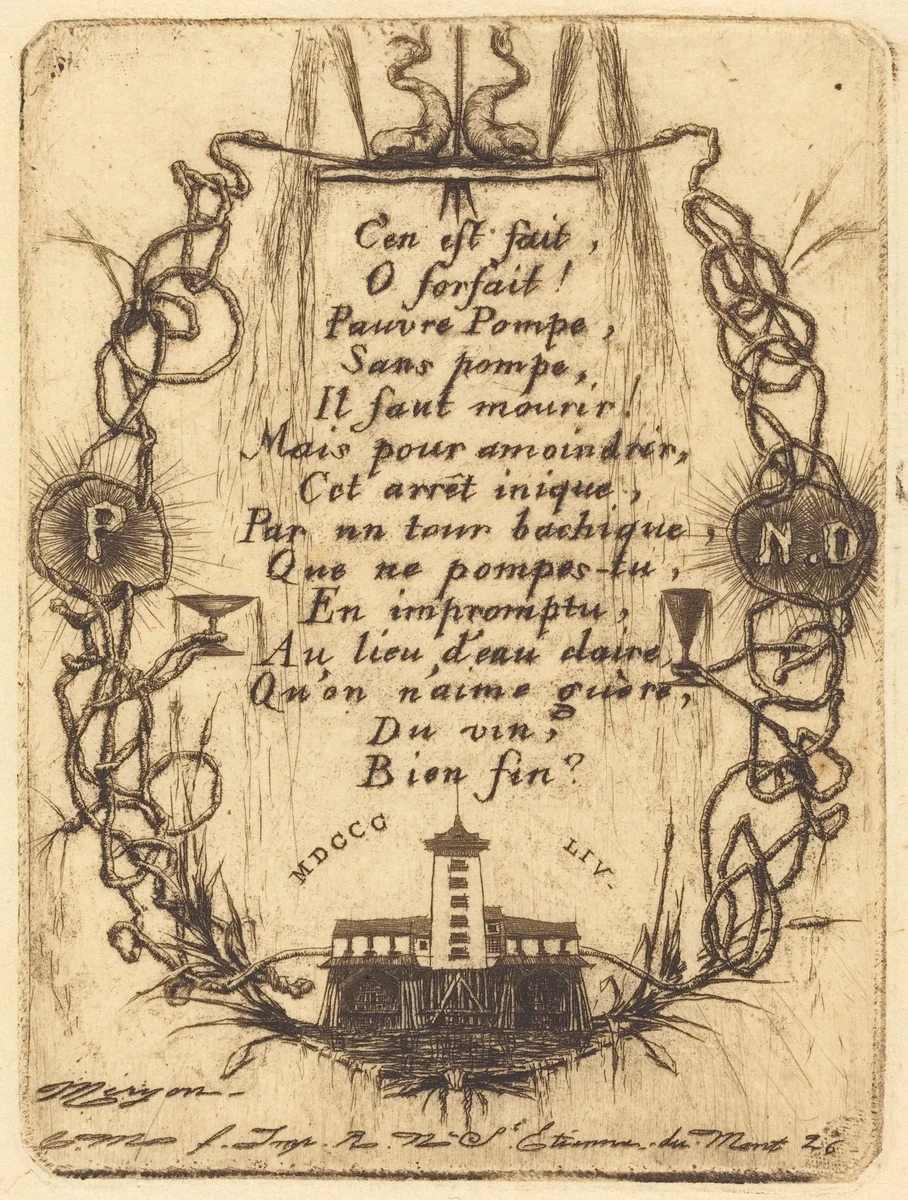 C'en est fait,
O forfait!
Pauvre Pompe,
Sans pompe,
Il faut mourir!
Mais pour amoindrir,
Cet arrêt inique,
Par un tour bachique,
Que ne pompes-tu,
En impromptu,
Au lieu d'eau claire
Qu'on n'aime guère,
Du vin,
Bien fin?
P
N.D
MDCCC LIV-
Meryon-
C. M f. Imp. R. N. St Etienne-du-Mont 26